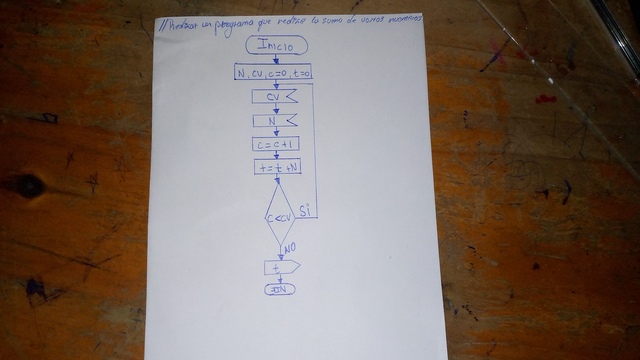 //Realizar un programa que realize la suma de varios numeros
Inicio
N, CV, c=0, t=0
CV
N
c=c+1
t=t+N
C<CV
Si
NO
t
FIN